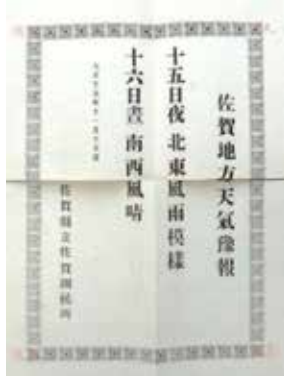 佐賀地方天氣豫報
十五日夜 北東風雨模様
十六日晝 南西風晴
佐賀縣立佐賀測候所